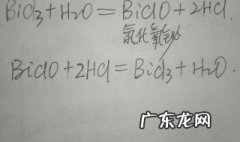 BiCl₃+H₂O=BiClO+2HCl.
氯化氧铋
BiClO+2HCl=BiCl₃+H₂O.
广东龙网